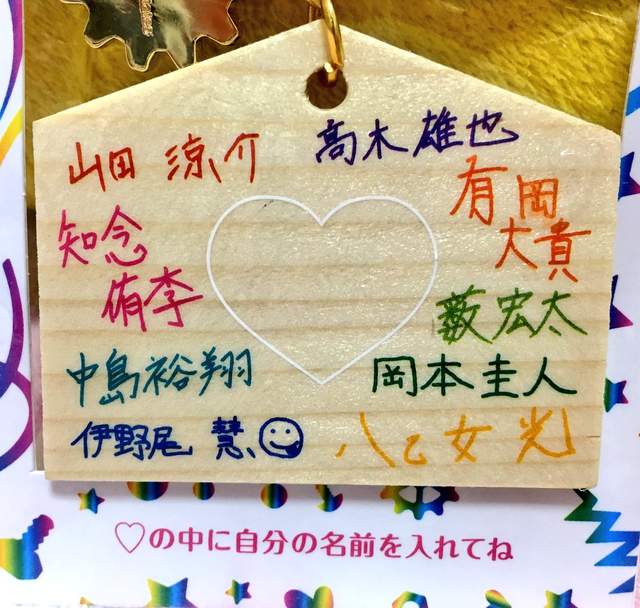 山田 涼介
高木雄也
有岡
大貴
知念
侑李
薮宏太
中島裕翔
岡本圭人
伊野尾 慧
八乙女 光
♡の中に自分の名前を入れてね